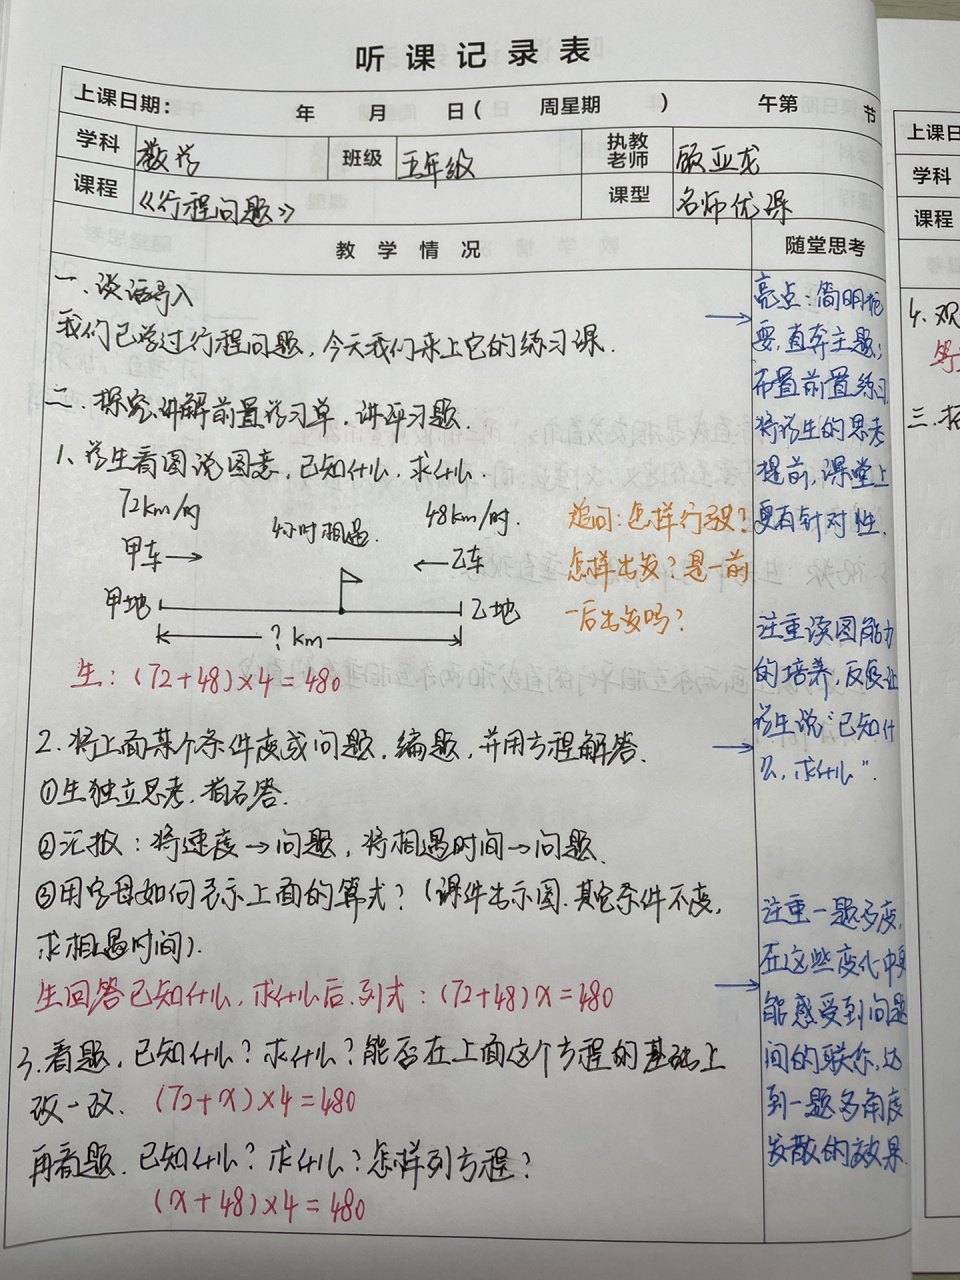 听课记录表
上课日期： 年 月 日（ 周星期 ） 午第 节
学科 数学 班级 五年级 执教老师 顾亚龙
课程 《行程问题》 课型 名师优课
教学情况 随堂思考
一、谈话导入
我们已学过行程问题，今天我们来上它的练习课.
二、探究、讲解前置学习单，讲评习题.
1、学生看图说图意，已知什么，求什么.
72km/时 4小时相遇. 48km/时.
甲车→ ←乙车
甲地 乙地
？km
追问：怎样行驶？
怎样出发？是一前
一后出发吗？
生：(72+48)×4=480
2.将上面某个条件变成问题，编题，并用方程解答.
①生独立思考，指名答.
②汇报：将速度→问题，将相遇时间→问题.
③用字母如何表示上面的算式？（课件出示图.其它条件不变，
求相遇时间）.
生回答已知什么，求什么后，列式：(72+48)x=480
3.看题，已知什么？求什么？能否在上面这个方程的基础上
改一改. (72+x)×4=480
再看题.已知什么？求什么？怎样列方程？
(x+48)×4=480
→ 亮点：简明扼
要，直奔主题；
布置前置练习
将学生的思考
提前，课堂上
更有针对性.
注重读图能力
的培养，反复让
→ 学生说“已知什
么，求什么”.
注重一题多变，
→ 在这些变化中更
能感受到问题
间的联系，达
到一题多角度
发散的效果.
上课日
学科
课程
4.观
三.拓